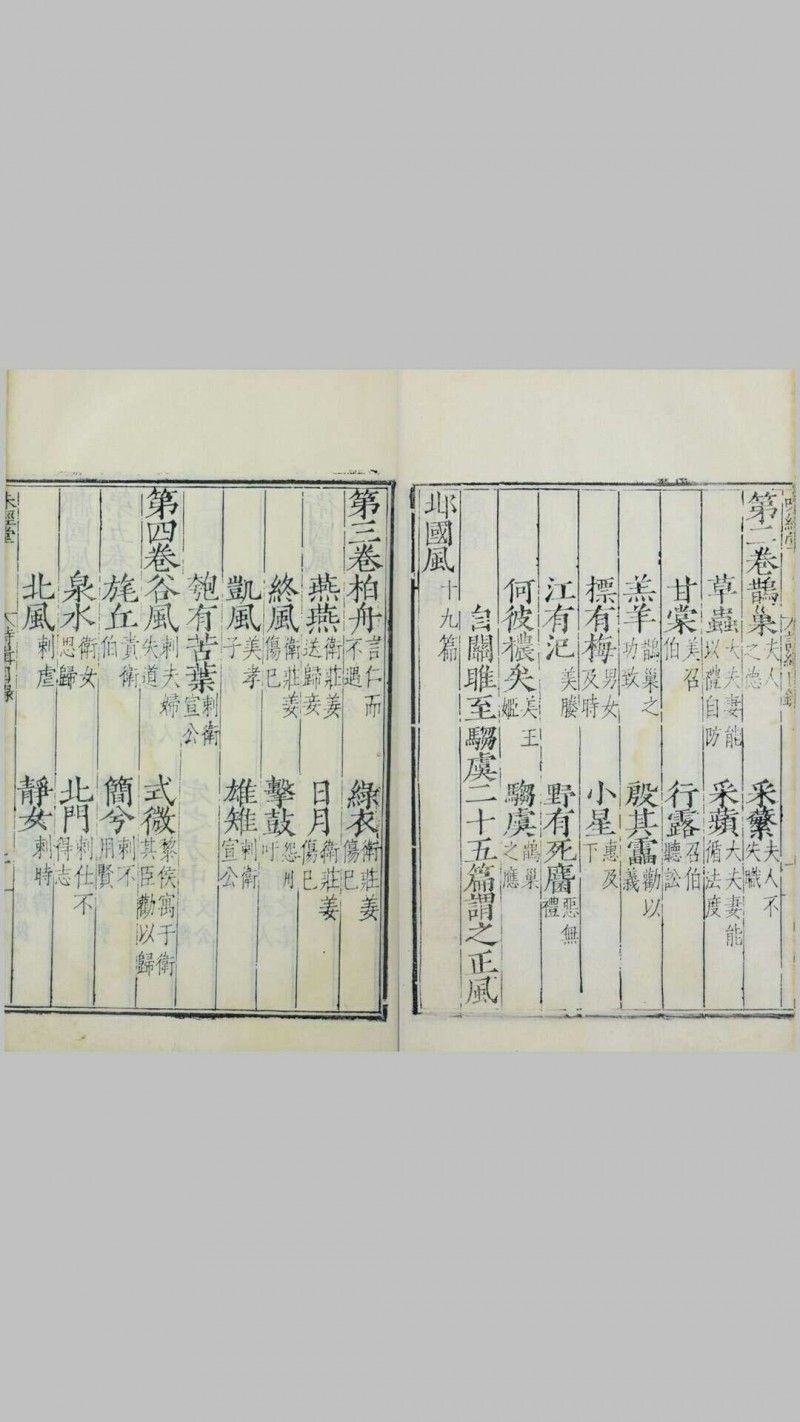 第二卷鵲巢夫人之德 采蘩夫人不失職
草蟲大夫妻能以禮自防 采蘋大夫妻能循法度
甘棠美召伯 行露召伯聽訟
羔羊鵲巢之功致 殷其靁勸以義
摽有梅男女及時 小星惠及下
江有汜美媵 野有死麕惡無禮
何彼襛矣美王姬 騶虞鵲巢之應
自關雎至騶虞二十五篇謂之正風
邶國風十九篇
第三卷柏舟言仁而不遇 綠衣衛莊姜傷已
燕燕衛莊姜送歸妾 日月衛莊姜傷已
終風衛莊姜傷已 擊鼓怨州吁
凱風美孝子 雄雉刺衛宣公
匏有苦葉刺衛宣公
第四卷谷風刺夫婦失道 式微黎侯寓于衛其臣勸以歸
旄丘責衛伯 簡兮刺不用賢
泉水衛女思歸 北門刺仕不得志
北風刺虐 靜女刺時